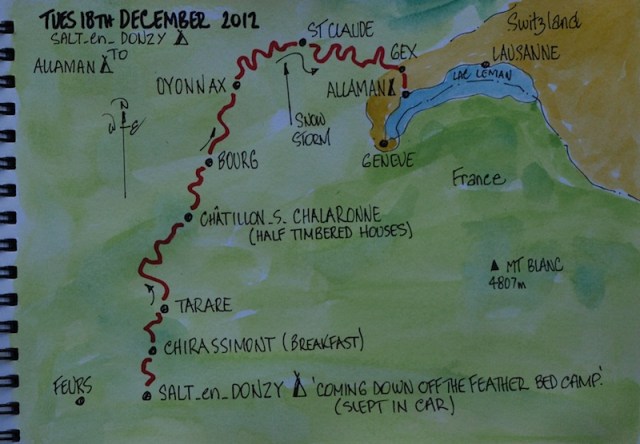 TUES 18TH DECEMBER 2012
SALT_en_DONZY
TO
ALLAMAN
ST CLAUDE
GEX
Switzland
LAUSANNE
LAC LEMAN
ALLAMAN
OYONNAX
SNOW
STORM
GENEVE
N
W
E
BOURG
France
CHÂTILLON_S_CHALARONNE
(HALF TIMBERED HOUSES)
MT BLANC
4807m
TARARE
CHIRASSIMONT (BREAKFAST)
FEURS
SALT_en_DONZY 'COMING DOWN OFF THE FEATHER BED CAMP.'
(SLEPT IN CAR)